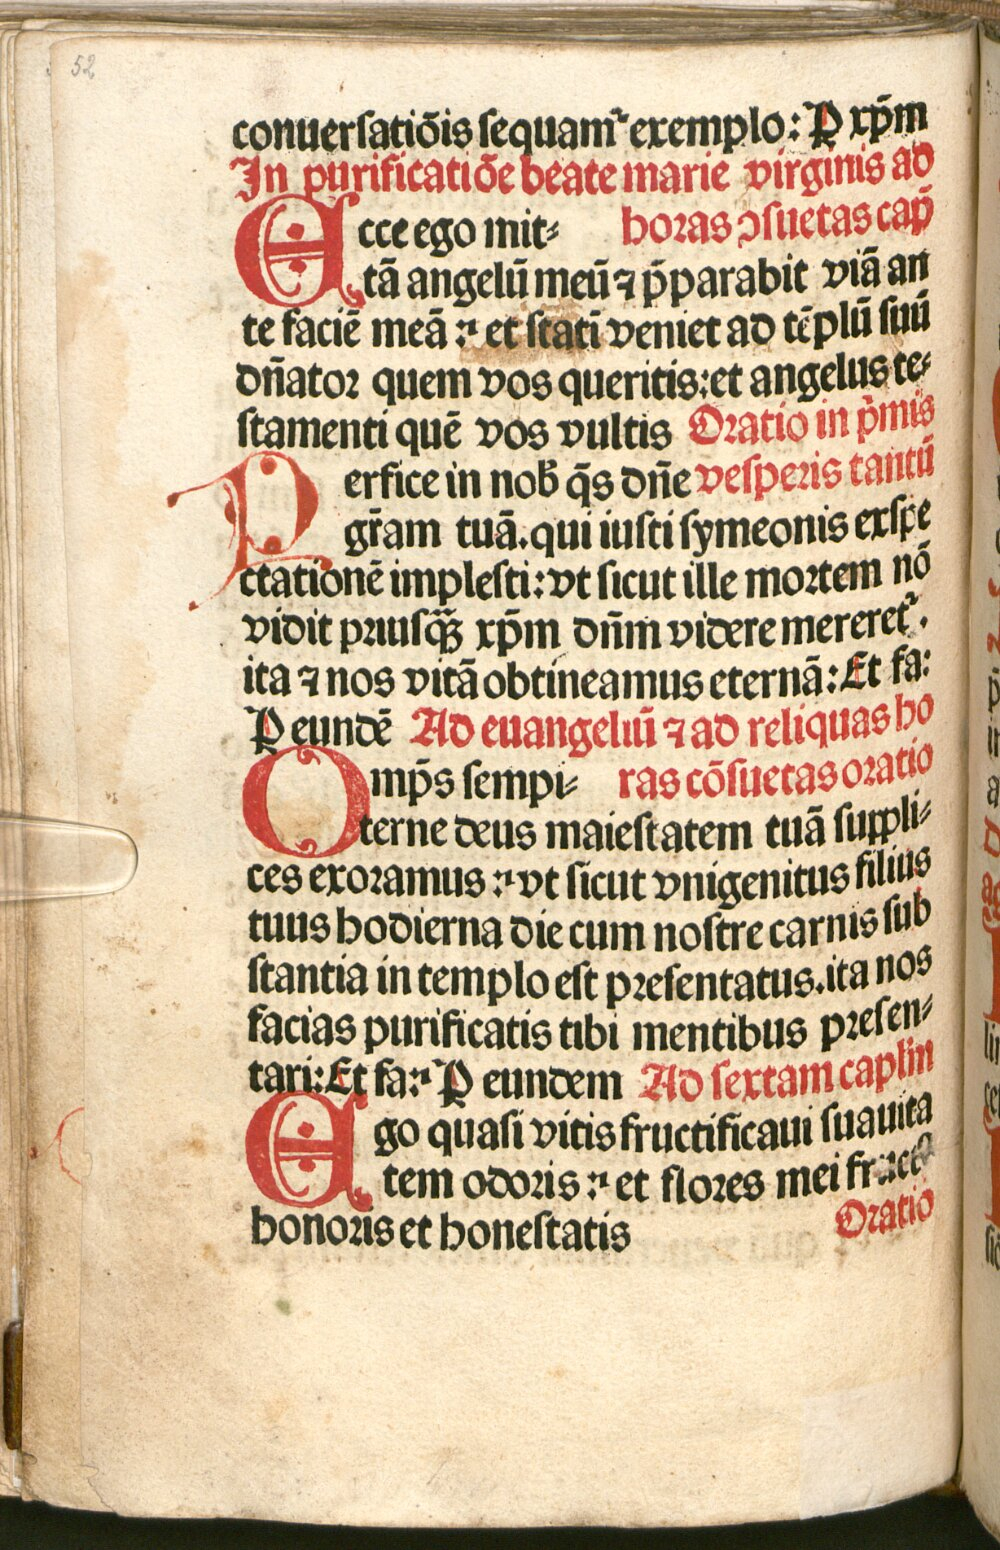 52
conuersatiōis sequamᷣ exemplo: P xp̄m
In purificatiōe beate marie virginis ad
Ecce ego mit⸗ horas ↄsuetas cap̄
tā angelū meū ⁊ p̄parabit viā an
te faciē meā: et statī veniet ad tēplū suū
dn̄ator quem vos queritis: et angelus te⸗
stamenti quē vos vultis Oratio in p̄mis
Perfice in nob̄ q̄s dn̄e vesperis tantū
gr̄am tuā. qui iusti symeonis exspe
ctationē implesti: vt sicut ille mortem nō
vidit priusꝙ̄ xp̄m dn̄m videre mereretᷣ.
ita ⁊ nos vitā obtineamus eternā: Et fa:
P eundē Ad euangeliū ⁊ ad reliquas ho
Omp̄s sempi⸗ ras cōsuetas oratio
terne deus maiestatem tuā suppli⸗
ces exoramus: vt sicut vnigenitus filius
tuus hodierna die cum nostre carnis sub
stantia in templo est presentatus. ita nos
facias purificatis tibi mentibus presen⸗
tari: Et fa: P eundem Ad sextam caplm̄
Ego quasi vitis fructificaui suauita
tem odoris: et flores mei fructꝰ
honoris et honestatis Oratio